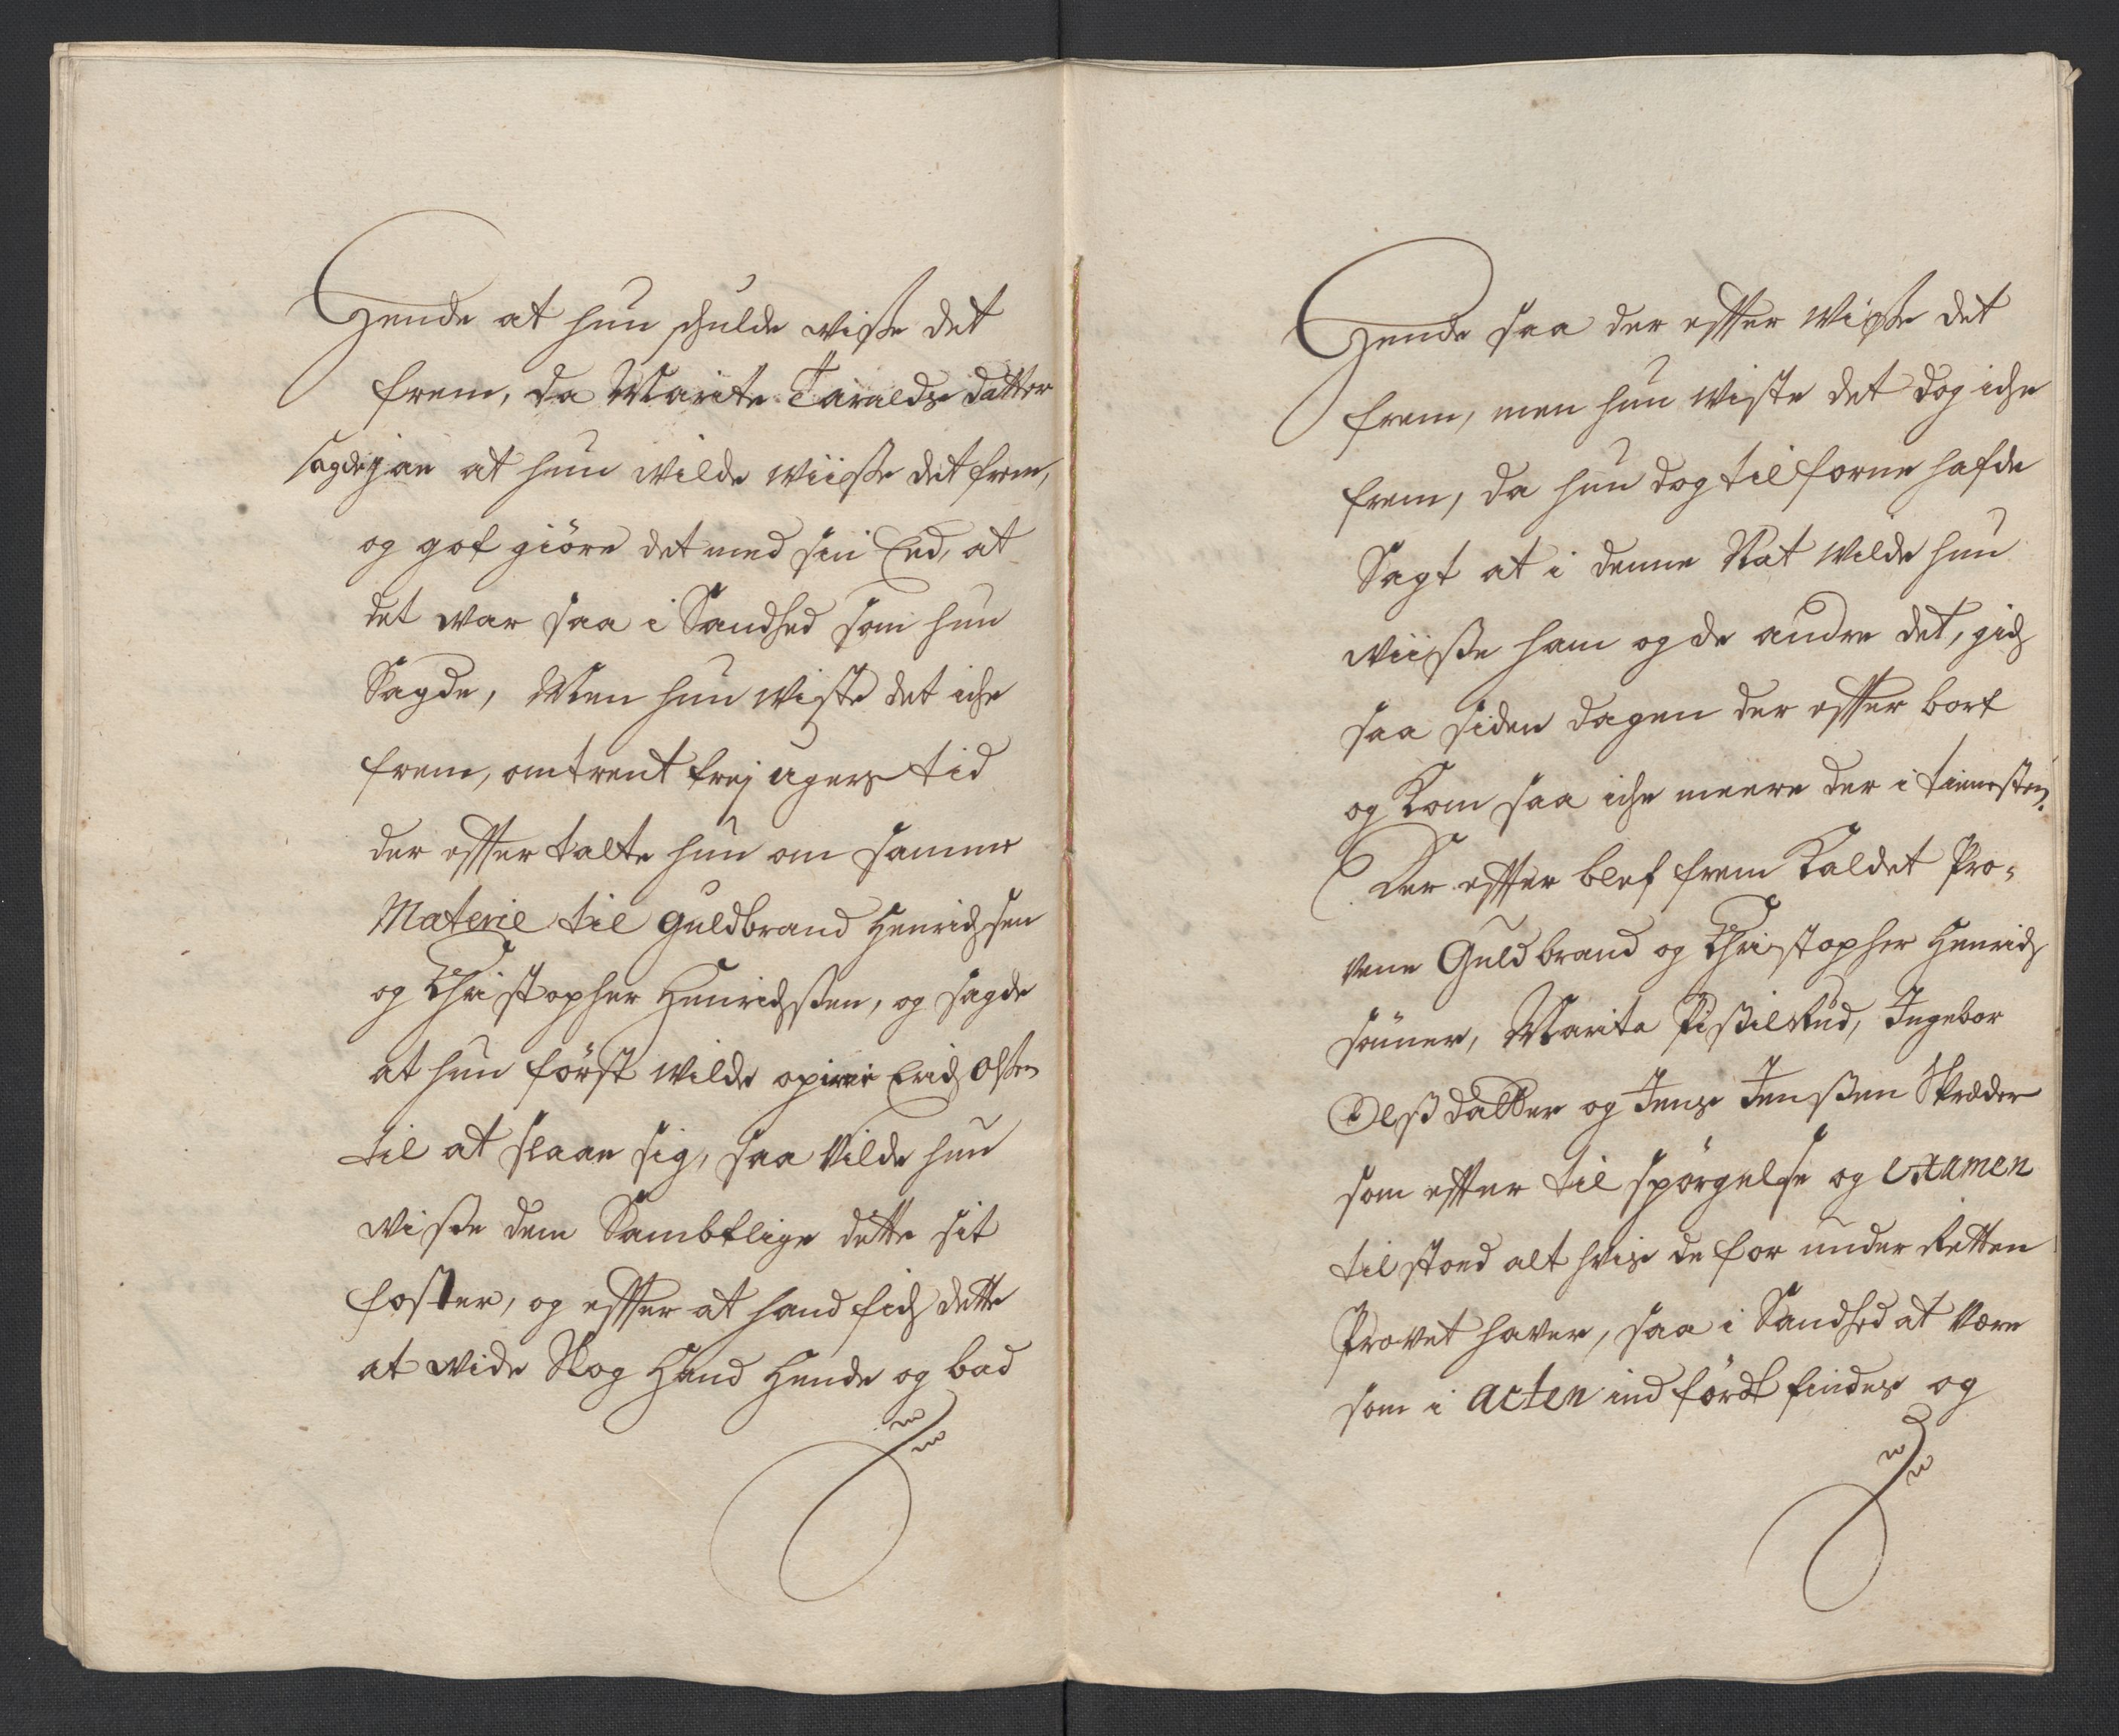 Hende at hun schulde wisse det
frem, da Marite Taralds datter
sagde jae at hun wilde wiisse det frem,
og gof giöre det med sin Eed, at
det war saa i Sandhed som hun
Sagde, Men hun wiste det iche
frem, omtrent trej ugers tid
der effter talte hun om samme
Materie til Guldbrand Henrichsen
og Christopher Henrichssen, og sagde
at hun först wilde Erich Olsen
til at slaae sig, saa vilde hun
wisse dem Sambtlige dette sit
foster, og effter at hand fich dette
at wide Slog Hand Hende og bad
Hende saa der effter wisse det
frem, men hun wiste det dog iche
frem, da hun dog tilforne hafde
Sagt at i denne Nat wilde hun
wiisse ham og de andre det, gich
saa siden dagen der effter bort
og Kom saa iche meere der i tienesten.
Der effter blef frem Kaldet Pro-
vene Guldbrand og Christopher Henrich
sönner, Marita Ingebor
Olss datter og Jens Jenssen Skræder
som effter til spörgelse og Examen
tilstoed alt hvis de for under Retten
Provet haver, saa i Sandhed at være
som i Acten indfördt findes og